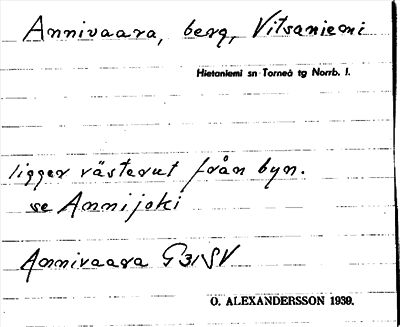 Annivaara, berg, Vitsaniemi
Hietaniemi sn Torneå tg Norrb. l.
ligger västerut från byn.
se Annijoki
Annivaara G31SV
O. ALEXANDERSSON 1939.